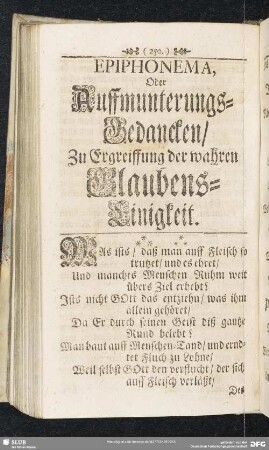 ( 250. )
EPIPHONEMA,
Oder
Auffmunterungs-
Gedancken/
Zu Ergreiffung der wahren
Glaubens-
Einigkeit.
WAs ists/ daß man auff Fleisch so
trutzet/ und es ehret/
Und manches Menschen Ruhm weit
übers Ziel erhebt?
Ists nicht GOtt das entziehn/ was ihm
allein gehöret/
Da Er durch seinen Geist diß gantze
Rund belebt?
Man baut auff Menschen-Tand/ und ernd-
tet Fluch zu Lohne/
Weil selbst GOtt den verflucht/ der sich
auff Fleisch verläßt/
Des
SLUB